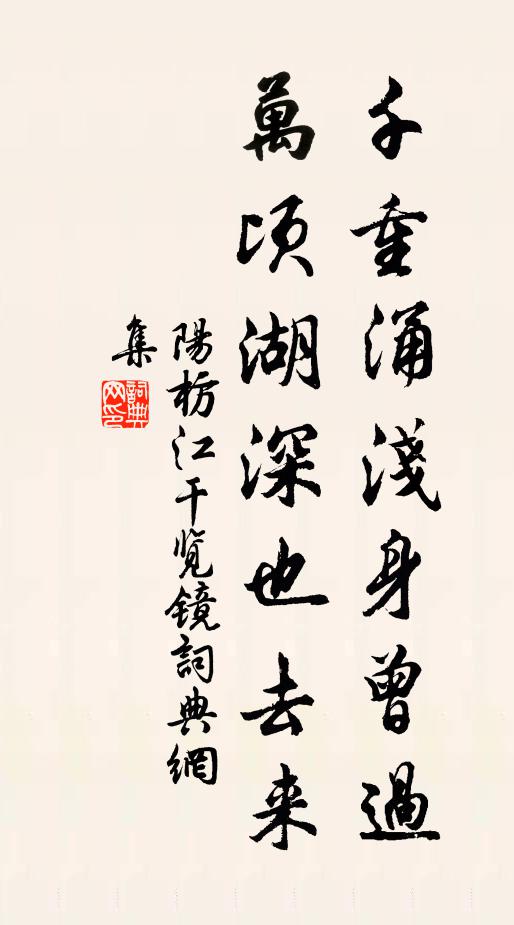 千重涌淺身曾過
萬頃湖深也去来
陽枋江干览鏡詞典網
集
詞典
网印